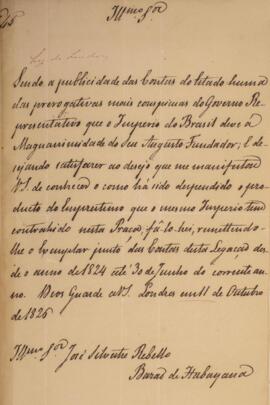 Illmo. Sr.
Sendo a publicidade das Contas do Estado huma
das prerogativas mais conspicuas do Governo Re-
presentativo que o Imperio do Brasil deve á
Magnanimidade do Seu Augusto Fundador; e de-
sejando satisfazer ao desejo que me manifestou
V.S. de conhecer o como há sido despendido o pro-
ducto do Emprestimo que o mesmo Imperio tem
contrahido nesta Praça, fá-lo-hei, remettendo-
lhe o Exemplar junto das Contas desta Legação des-
de o anno de 1824 até 30 de Junho do corrente an-
no. Deos Guarde a V.S. Londres em 11 de Outubro
de 1826
Illmo. Sr. José Silvestre Rebello
Barão de Itabayana